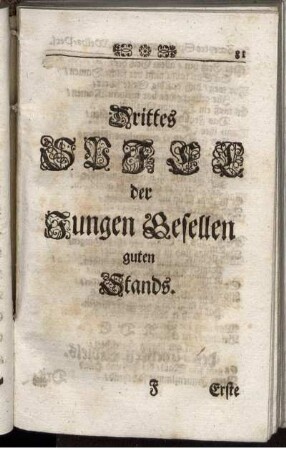 81
Drittes
SPIEL
der
Jungen Gesellen
guten
Stands.
F Erste